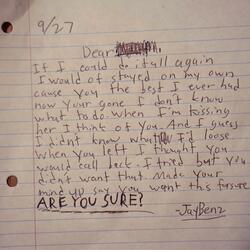 9/27
Dear
If I could do it all again
I would of stayed on my own
cause you the best I ever had
now your gone I don't know
what to do. When I'm kissing
her I think of you. And I guess
I didnt know what I'd loose
When you left I thought you
would call back. I tried but you
didn't want that. Made your
mind up say you want this forsure
ARE YOU SURE?
-JayBenz